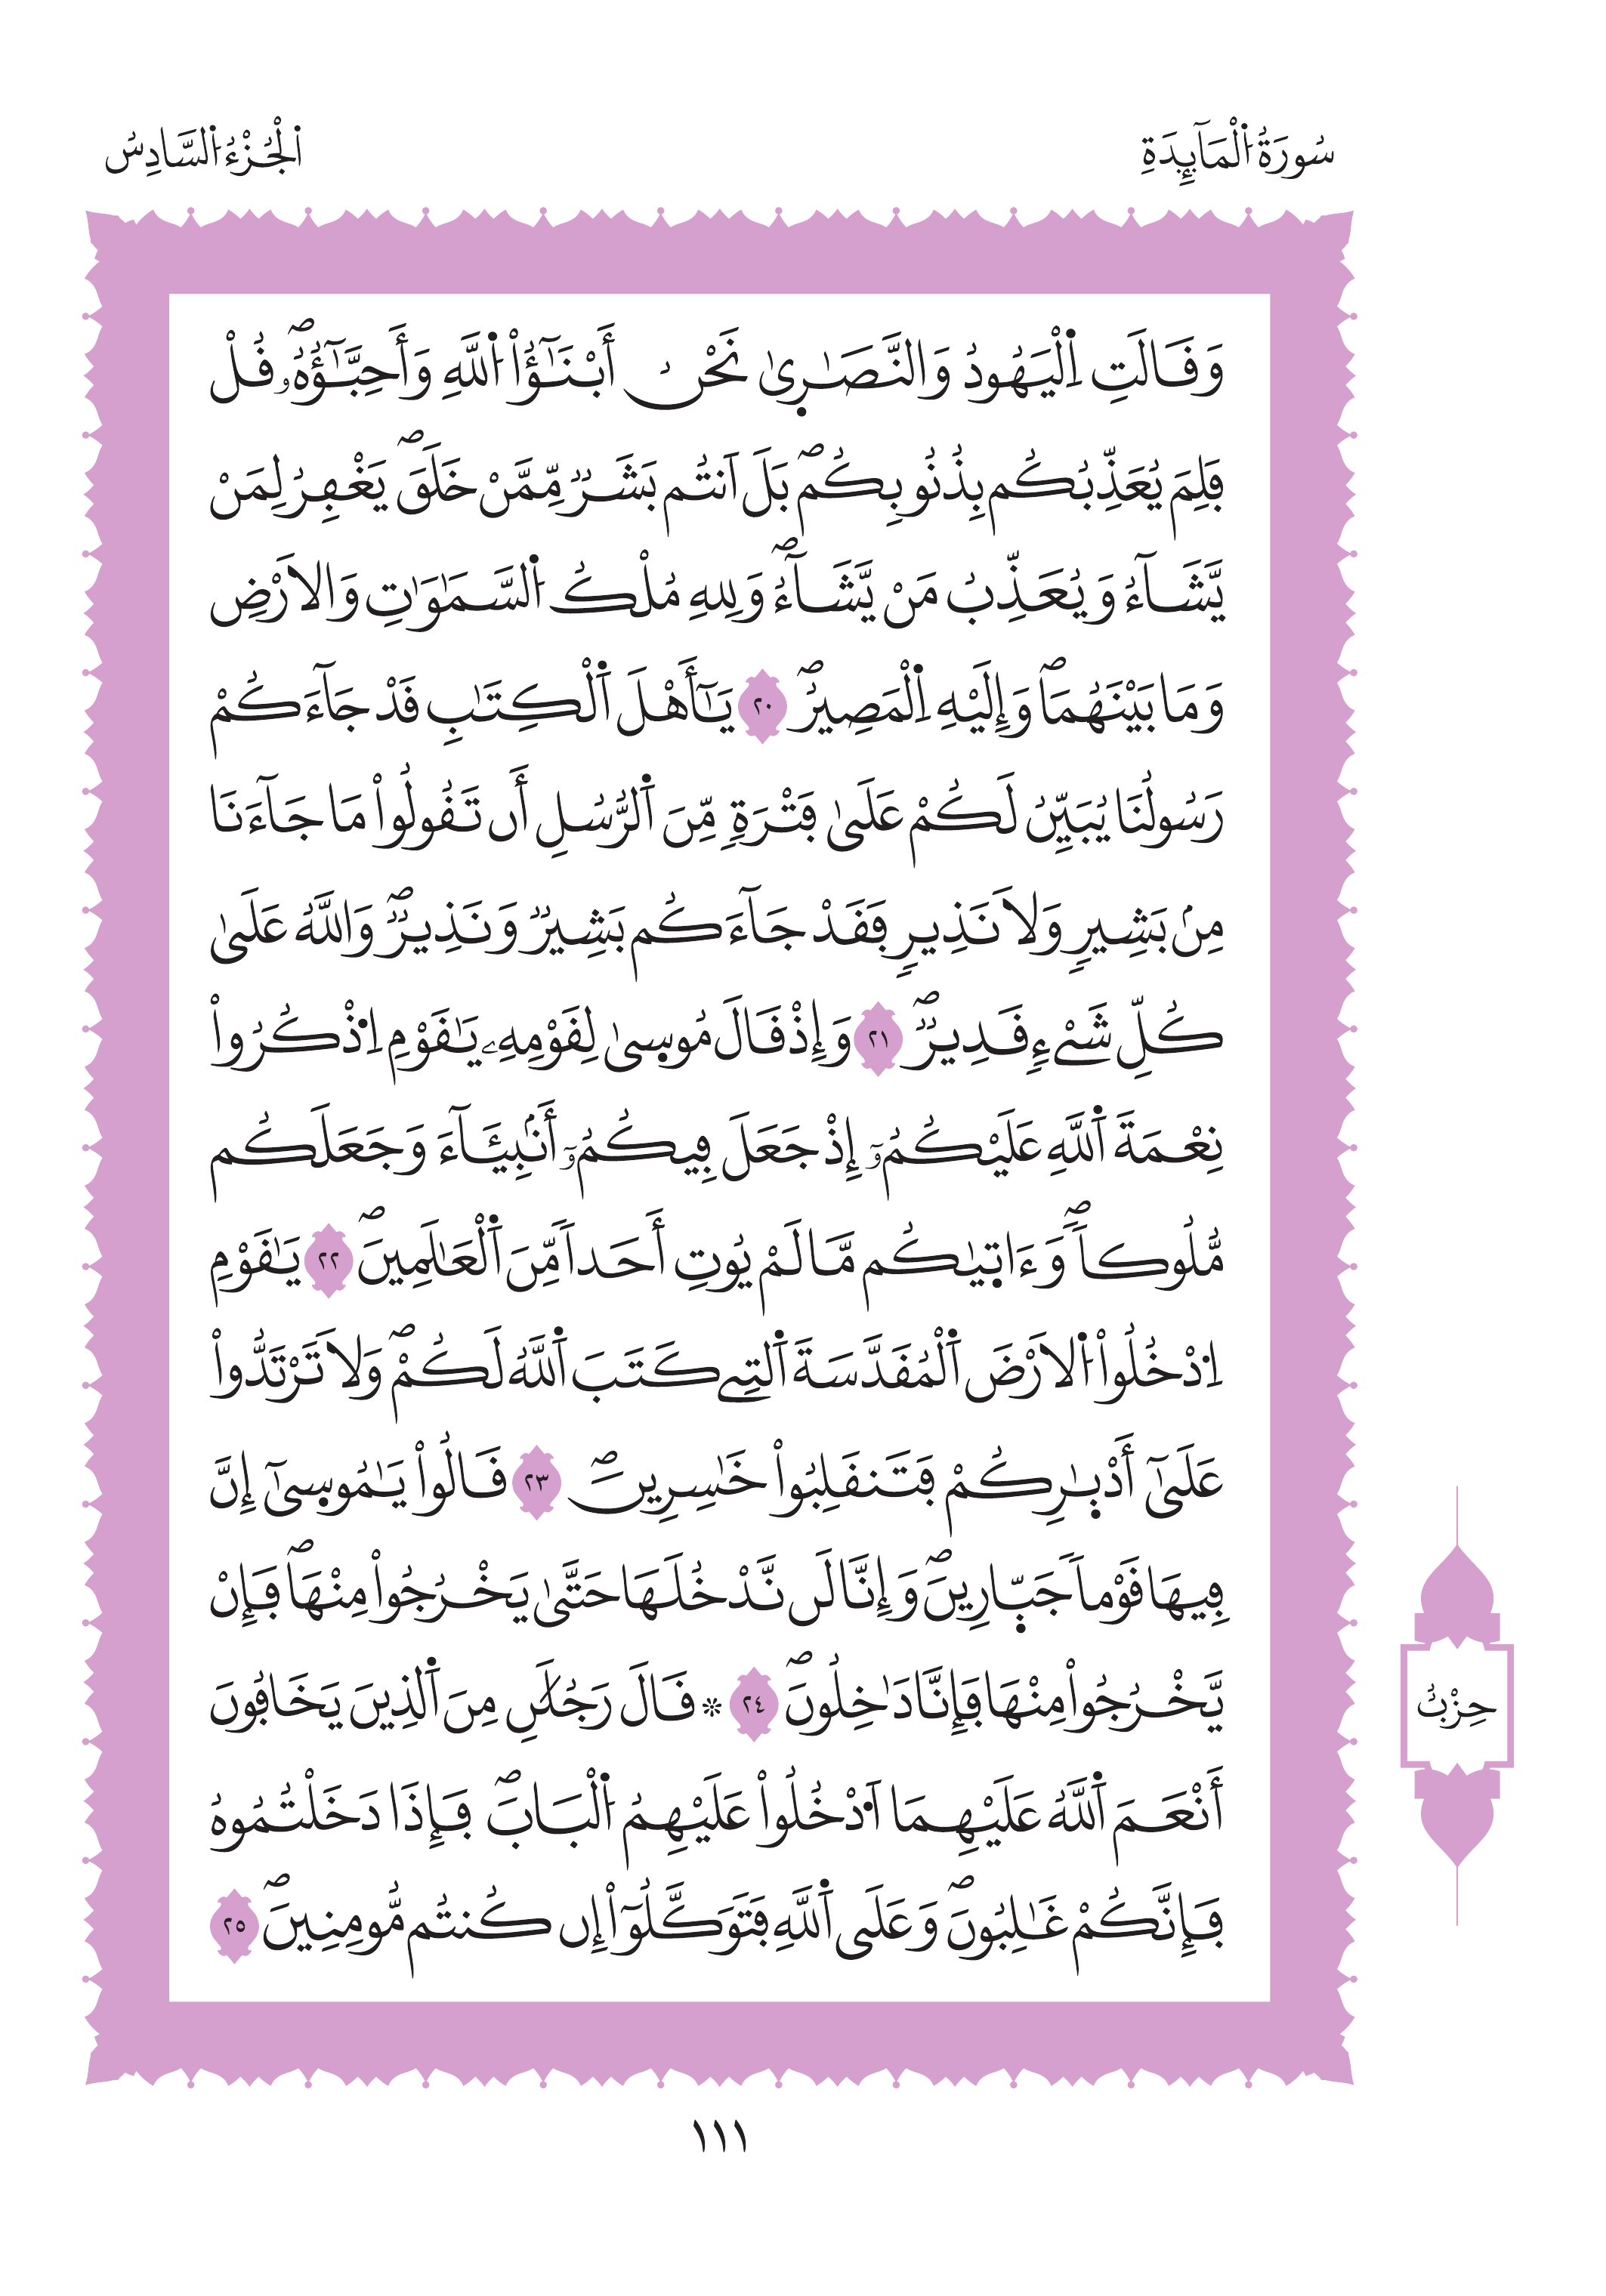 سُورَةُ اُ۬لْمَآئِدَةِ
اَ۬لْجُزْءُ اُ۬لسَّادِسُ
وَقَالَتِ اِ۬لْيَهُودُ وَالنَّصَٰرِىٰ نَحْنُ أَبْنَٰٓؤُاْ اُ۬للَّهِ وَأَحِبَّٰٓؤُهُۥۖ قُلْ
فَلِمَ يُعَذِّبُكُم بِذُنُوبِكُمۖ بَلَ اَنتُم بَشَرٞ مِّمَّنْ خَلَقَۖ يَغْفِرُ لِمَنْ
يَّشَآءُ وَيُعَذِّبُ مَنْ يَّشَآءُۖ وَلِلهِ مُلْكُ اُ۬لسَّمَٰوَٰتِ وَالَارْضِ
وَمَا بَيْنَهُمَاۖ وَإِلَيْهِ اِ۬لْمَصِيرُۖ ٢٠ يَٰٓأَهْلَ اَ۬لْكِتَٰبِ قَدْ جَآءَكُمْ
رَسُولُنَا يُبَيِّنُ لَكُمْ عَلَىٰ فَتْرَةٖ مِّنَ اَ۬لرُّسُلِ أَن تَقُولُواْ مَا جَآءَنَا
مِنۢ بَشِيرٖ وَلَا نَذِيرٖ فَقَدْ جَآءَكُم بَشِيرٞ وَنَذِيرٞۖ وَاللَّهُ عَلَىٰ
كُلِّ شَےْءٖ قَدِيرٞۖ ٢١ وَإِذْ قَالَ مُوسِىٰ لِقَوْمِهِۦ يَٰقَوْمِ اِ۟ذْكُرُواْ
نِعْمَةَ اَ۬للَّهِ عَلَيْكُمُۥٓ إِذْ جَعَلَ فِيكُمُۥٓ أَنۢبِيَـَٔآءَ وَجَعَلَكُم
مُّلُوكاٗۖ وَءَاتِيٰكُم مَّا لَمْ يُوتِ أَحَداٗ مِّنَ اَ۬لْعَٰلَمِينَۖ ٢٢ يَٰقَوْمِ
اِ۟دْخُلُواْ اُ۬لَارْضَ اَ۬لْمُقَدَّسَةَ اَ۬لتِے كَتَبَ اَ۬للَّهُ لَكُمْۖ وَلَا تَرْتَدُّواْ
عَلَىٰٓ أَدْبِٰرِكُمْ فَتَنقَلِبُواْ خَٰسِرِينَۖ ٢٣ قَالُواْ يَٰمُوسِىٰٓ إِنَّ
فِيهَا قَوْماٗ جَبِّارِينَۖ وَإِنَّا لَن نَّدْخُلَهَا حَتَّىٰ يَخْرُجُواْ مِنْهَاۖ فَإِنْ
يَّخْرُجُواْ مِنْهَا فَإِنَّا دَٰخِلُونَۖ ٢٤ ۞ قَالَ رَجُلَٰنِ مِنَ اَ۬لذِينَ يَخَافُونَ
أَنْعَمَ اَ۬للَّهُ عَلَيْهِمَا اَ۟دْخُلُواْ عَلَيْهِمُ اُ۬لْبَابَۖ فَإِذَا دَخَلْتُمُوهُ
فَإِنَّكُمْ غَٰلِبُونَۖ وَعَلَى اَ۬للَّهِ فَتَوَكَّلُوٓاْ إِن كُنتُم مُّومِنِينَۖ ٢٥
حِزْبٌ
١١١